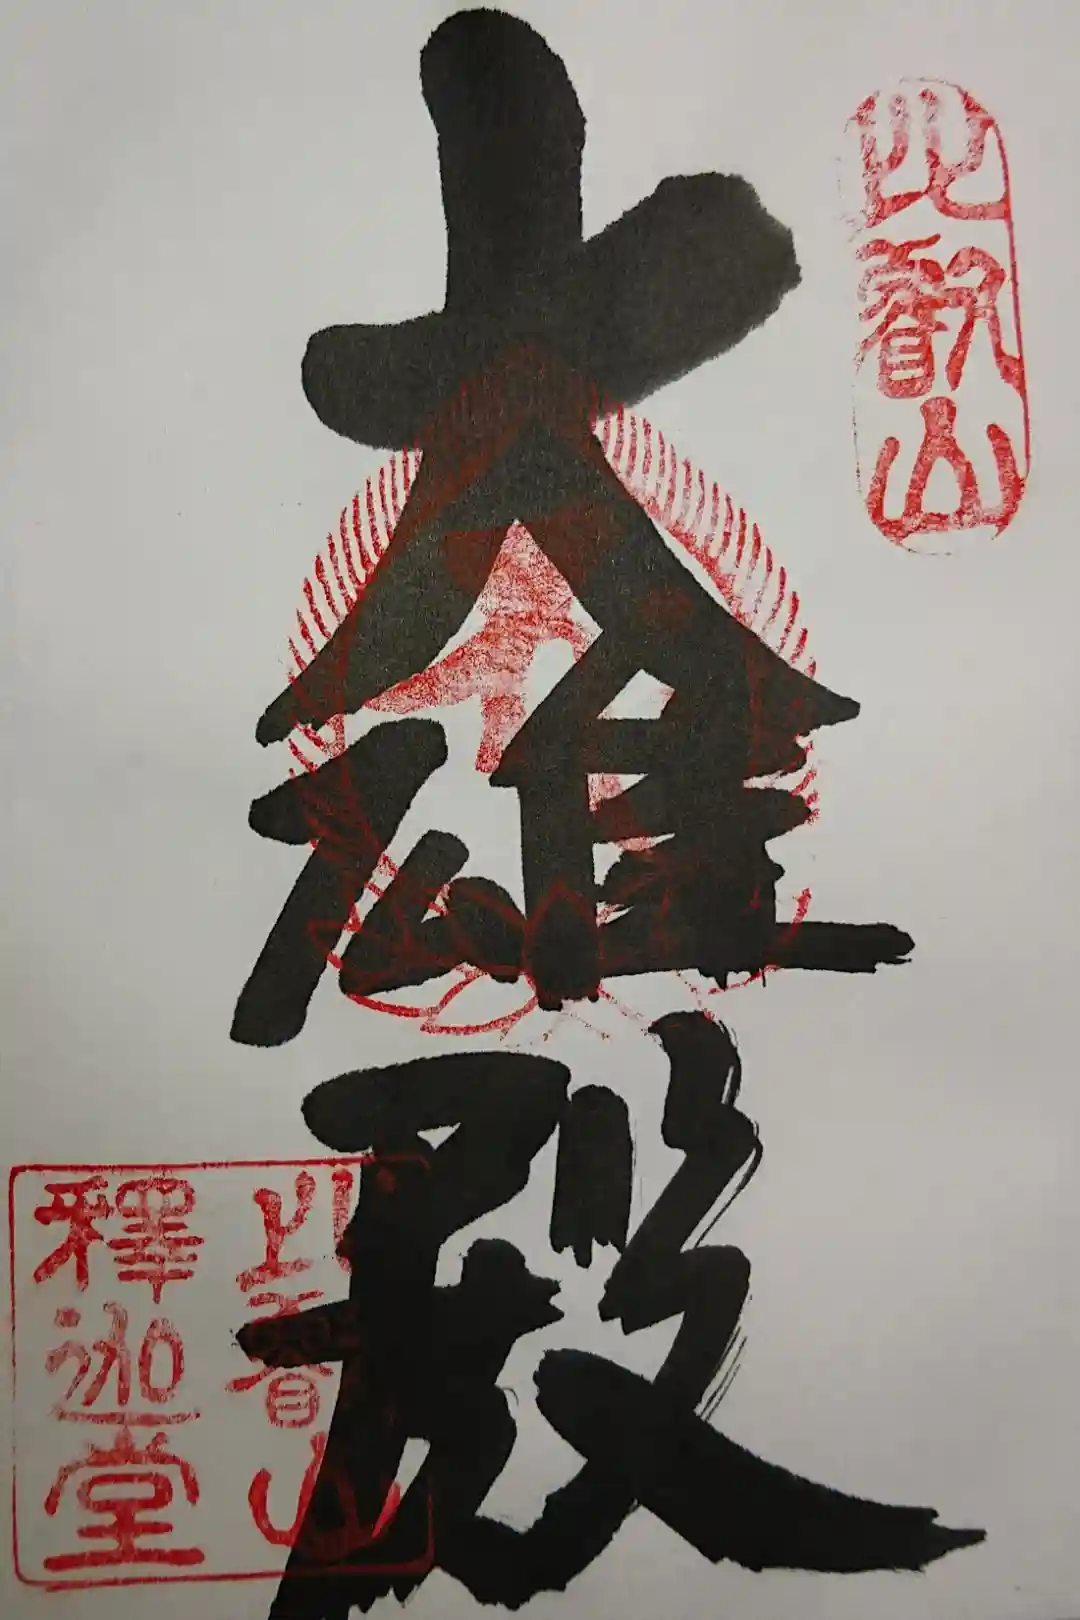 比叡山
大雄殿
比叡山
釋迦堂